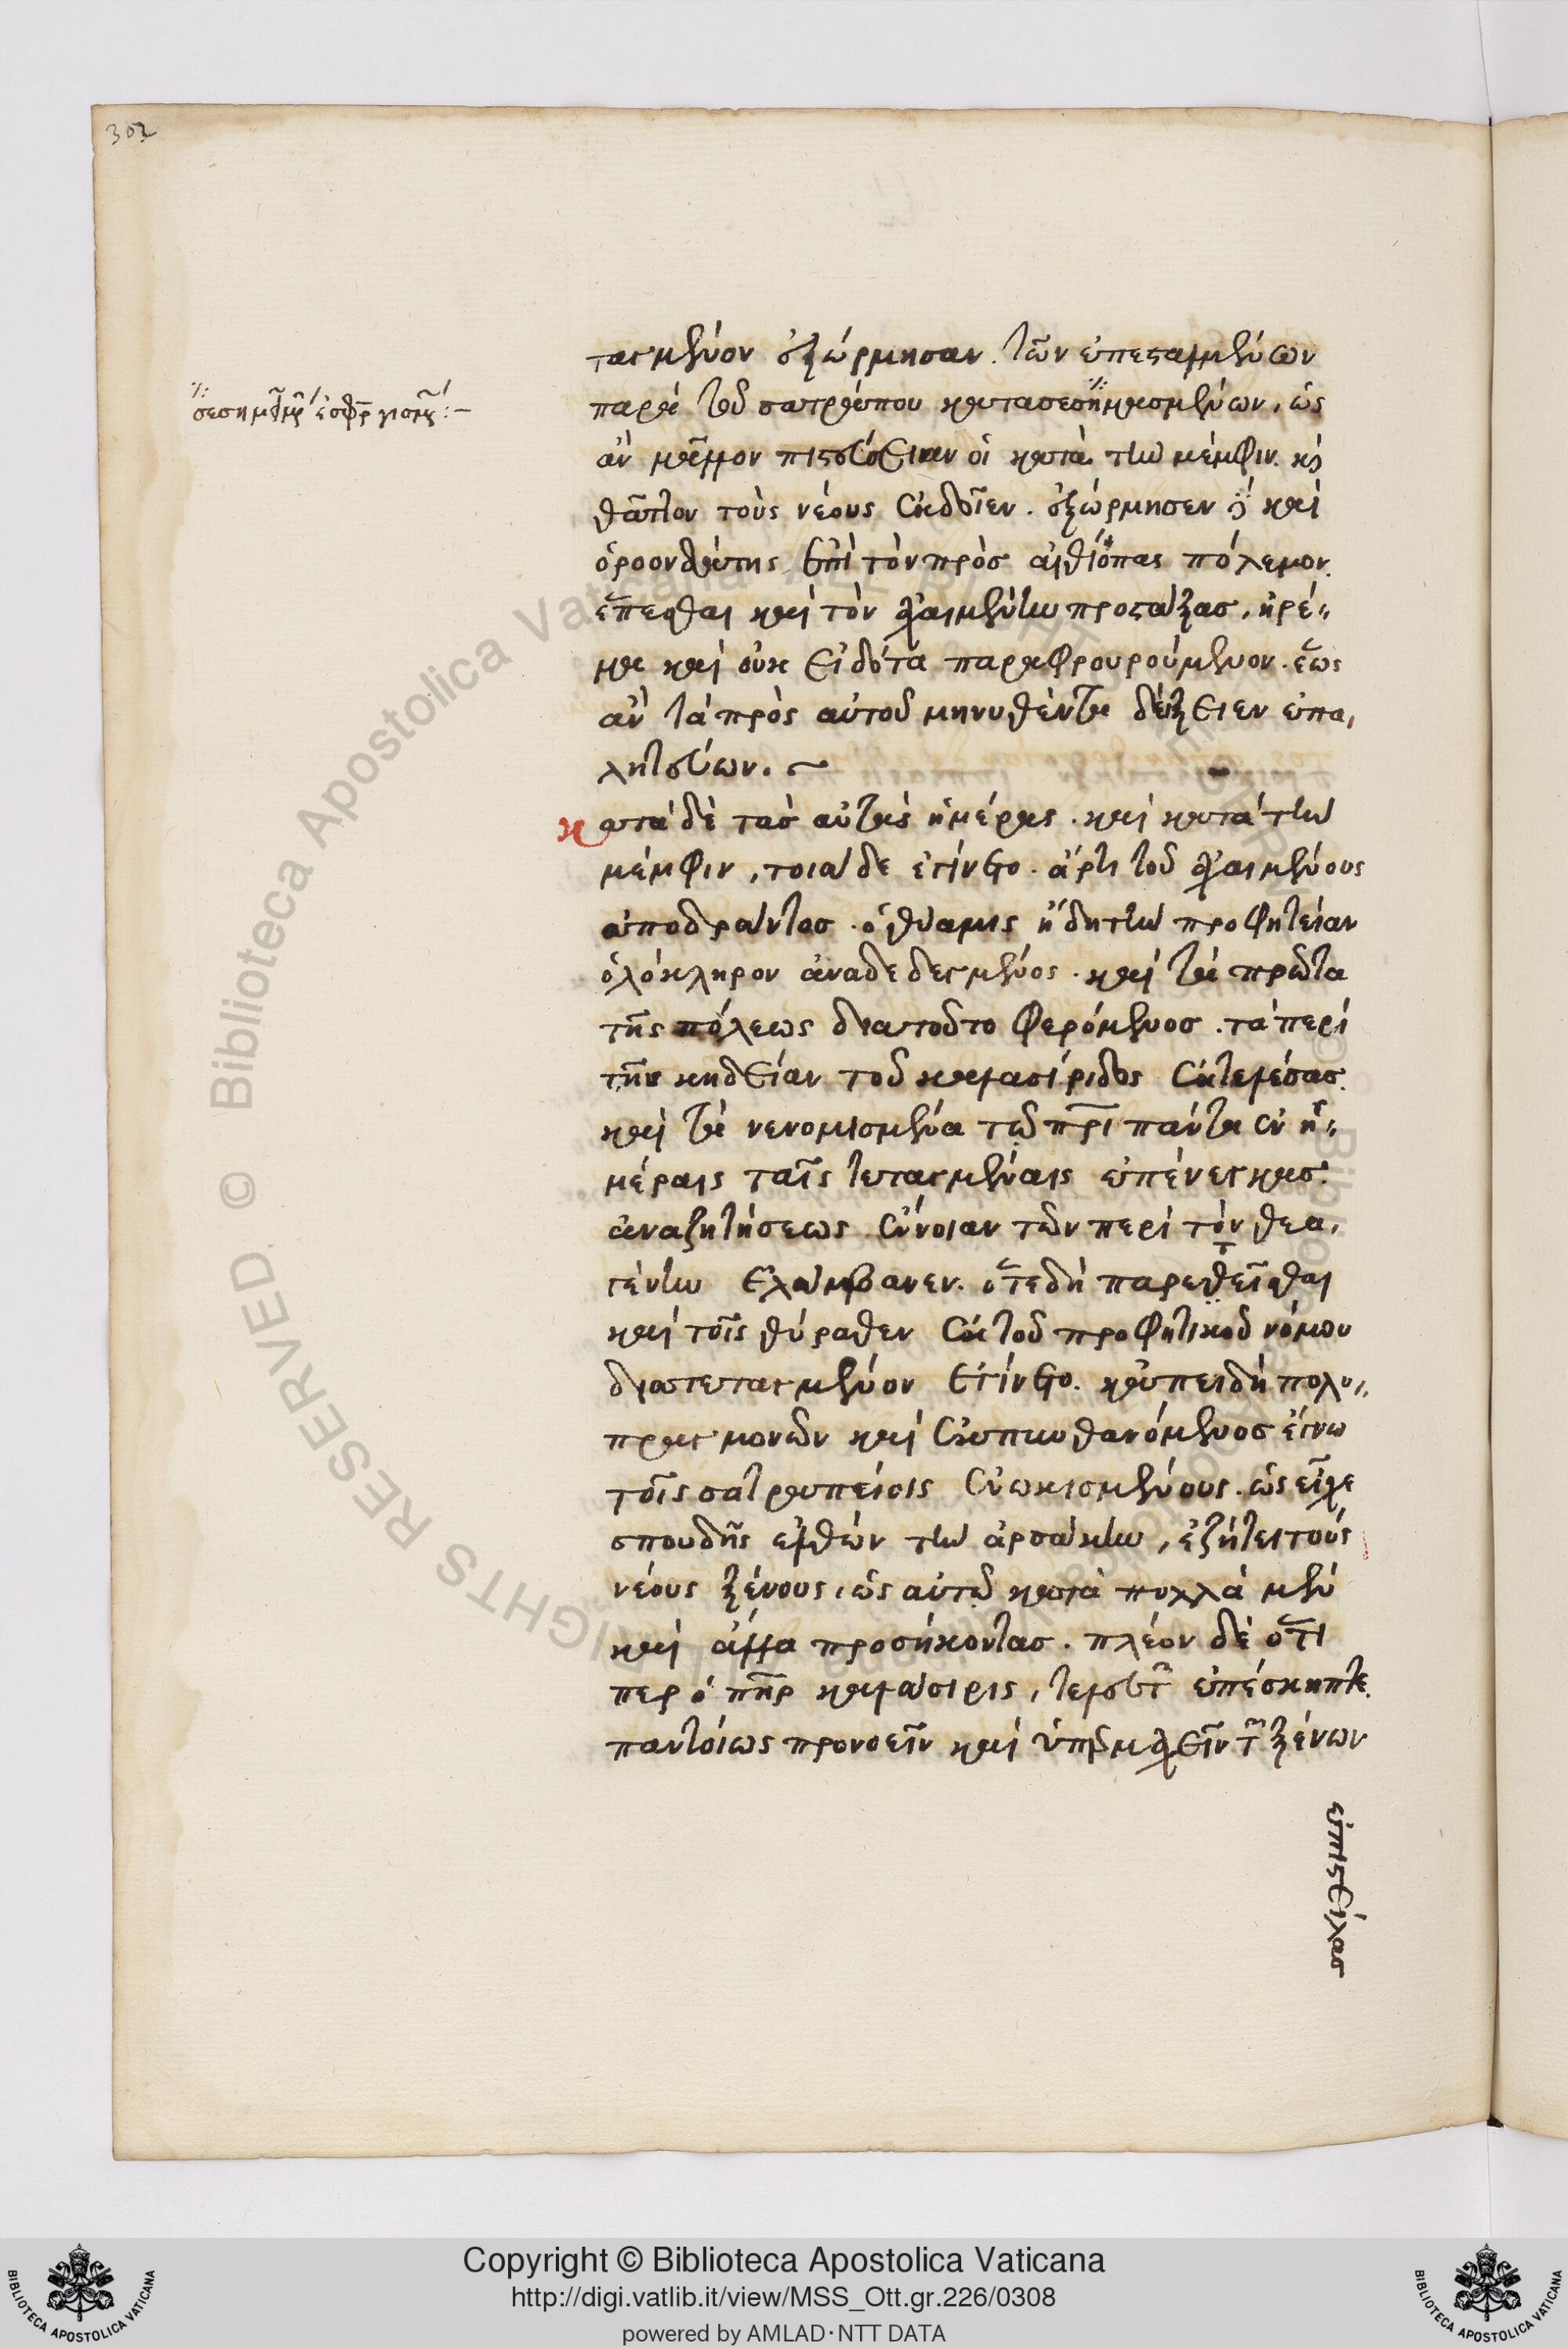 302
σεσημασμένων ἐσφραγισμένων :-
ταγμένον ἐξώρμησαν. τῶν ἐπεσταλμένων
παρὰ τοῦ σατράπου κατασεσημασμένων, ὡς
ἂν μᾶλλον πιστεύσειαν οἱ κατὰ τὴν μέμφιν. καὶ
θᾶττον τοὺς νέους ἐκδοῖεν. ἐξώρμησεν δὲ καὶ
ὀροονδάτης ἐπὶ τὸν πρὸσ αἰθίοπας πόλεμον.
ἕπεσθαι καὶ τὸν ἀχαιμένην προστάξασ. ἠρέ-
μα καὶ οὐκ εἰδότα παραφρουρούμενον. ἕως
ἂν τὰ πρὸς αὐτοῦ μηνυθέντα δείξειεν ἐπα-
ληθεύων.
κατὰ δὲ τὰσ αὐτὰς ἡμέρας. καὶ κατὰ τὴν
μέμφιν, τοιάδε ἐγίνετο. ἄρτι τοῦ ἀχαιμένους
ἀποδράντοσ. ὁ θύαμις ἤδη τὴν προφητείαν
ὁλόκληρον ἀναδεδεγμένος. καὶ τὰ πρῶτα
τῆς πόλεως διὰ τοῦτο φερόμενοσ. τὰ περὶ
τὴν κηδείαν τοῦ καλασίριδος ἐκτελέσας.
καὶ τὰ νενομισμένα τῶ πρι πάντα ἐν ἡ-
μέραις ταῖς τεταγμέναις ἐπενεγκάσ.
ἀναζητήσεως ἔννοιαν τῶν περὶ τὸν θεα-
γένην ἐλάμβανεν. ὅτε δὴ παρεῖσθαι
καὶ τοῖς θύραθεν ἐκ τοῦ προφητικοῦ νόμου
διατεταγμένον ἐγίνετο. κἀπειδὴ πολυ-
πραγμονῶν καὶ ἐκπυνθανόμενοσ ἔγνω
τοῖς σατραπείοις ἐνωκισμένους. ὡς εἶχε
σπουδῆς ἐλθὼν τὴν ἀρσάκην, ἐξήτει τοὺς
νέους ξένους, ὡς αὐτῶ κατὰ πολλὰ μὲν
καὶ ἄλλα προσήκοντασ. πλέον δὲ ὅτι
περ ὁ πηρ καλάσιρις, τελευτῶν ἐπέσκηπτε.
παντοίως προνοεῖν καὶ ὑπερμαχεῖν τῶν ξένων
ἐπιστείλασ
Copyright © Biblioteca Apostolica Vaticana
http://digi.vatlib.it/view/MSS_Ott.gr.226/0308
powered by AMLAD·NTT DATA